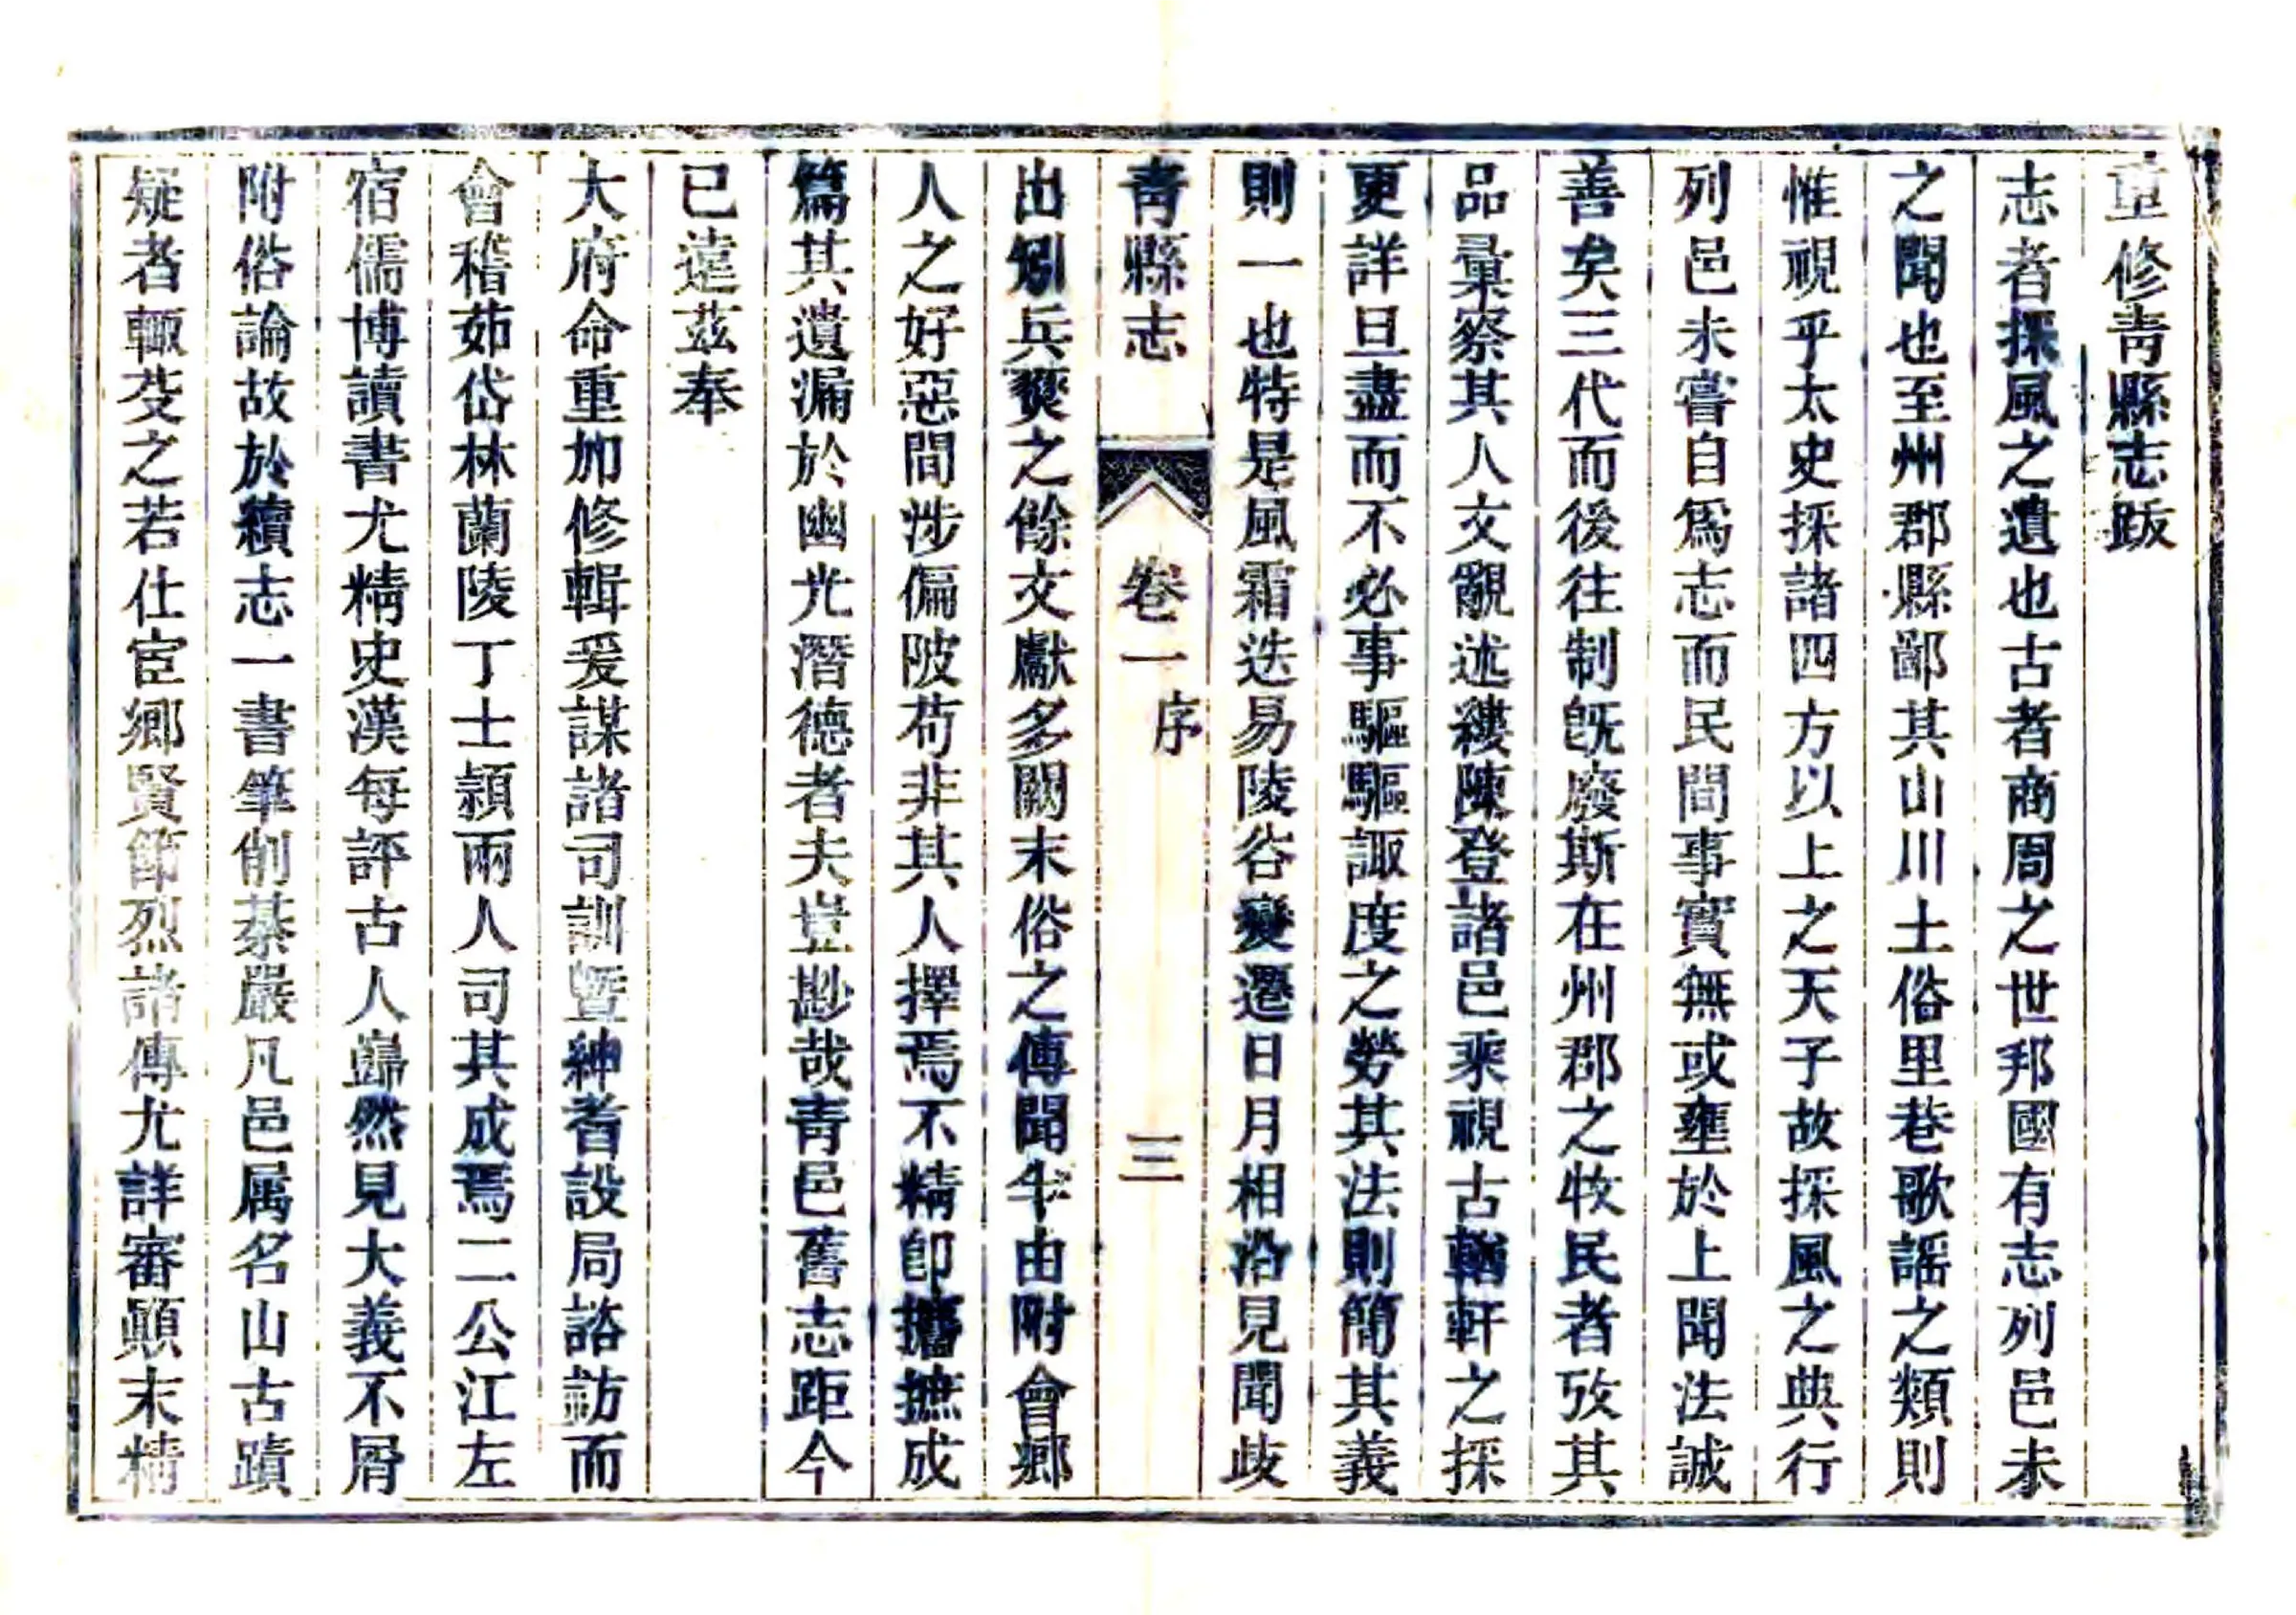 重修青縣志跋
志者採風之遺也古者商周之世邦國有志列邑未
之聞也至州郡縣鄙其山川土俗里巷歌謡之類則
惟視乎太史採諸四方以上之天子故採風之典行
列邑未嘗自爲志而民間事實無或壅於上聞法誠
善矣三代而後往制旣廢斯在州郡之牧民者攷其
品彙察其人文覼述縷陳登諸邑乘視古輶軒之採
更詳且盡而不必事驅驅諏度之勞其法則簡其義
則一也特是風霜迭易陵谷變遷日月相沿見聞歧
青縣志
卷一
序
三
出矧兵燹之餘文獻多闕末俗之傳聞半由附會鄉
人之好惡間涉偏陂苟非其人擇焉不精卽攟摭成
篇其遺漏於幽光潛德者夫豈尠哉青邑舊志距今
已遠茲奉
大府命重加修輯爰謀諸司訓曁紳耆設局諮訪而
會稽茹岱林蘭陵丁士頴兩人司其成焉二公江左
宿儒博讀書尤精史漢每評古人巋然見大義不屑
附俗論故於續志一書筆削綦嚴凡邑属名山古蹟
疑者輙芟之若仕宦鄉賢節烈諸傳尤詳審顚末精